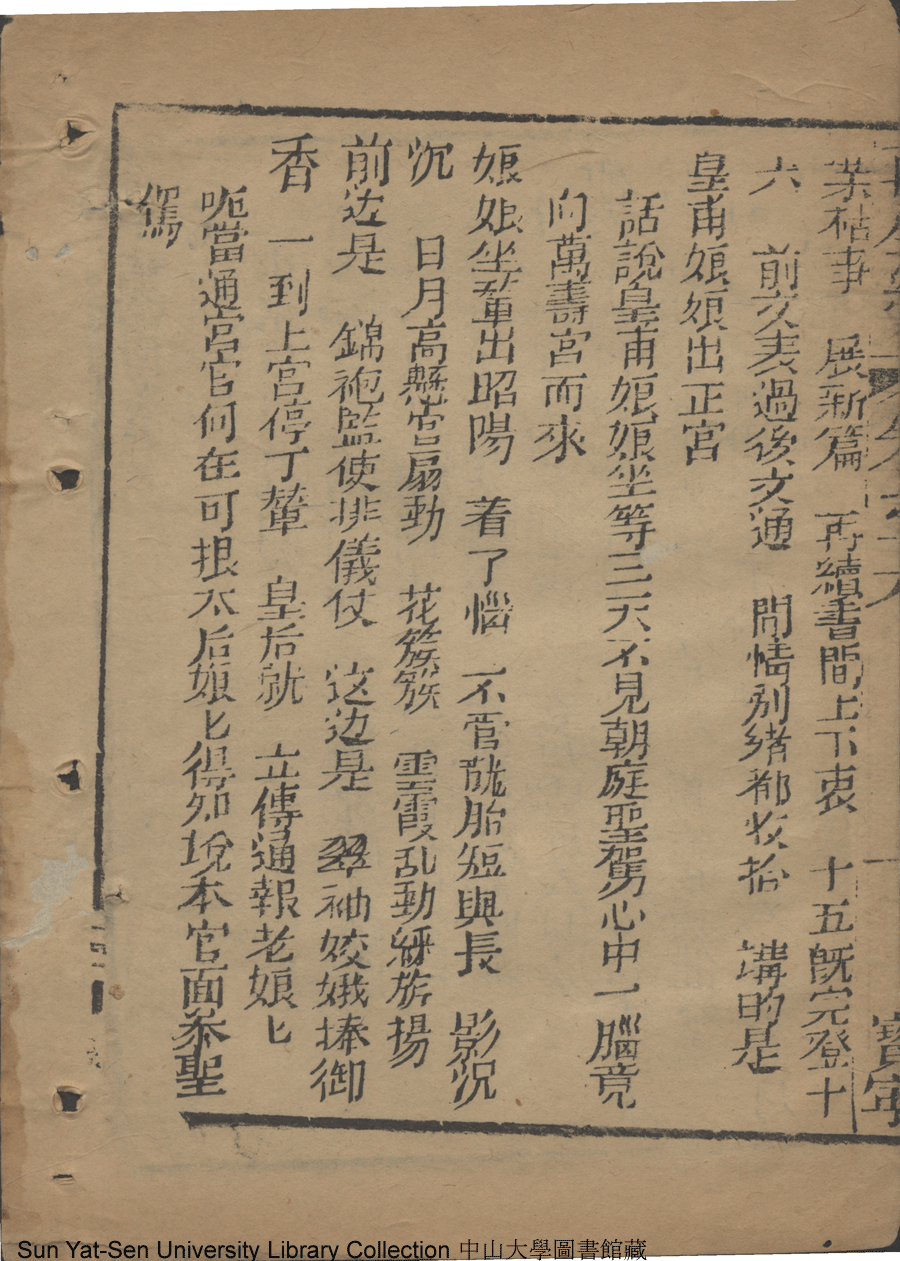 寳寕
茶秙事 展新篇 再續書間上下衷 十五既完登十
六 前文表過後文通 閒情別緒都收拾 講的是
皇甫娘娘出正宮
話說皇甫娘娘坐等三天不見朝庭聖駕心中一腦竟
向萬壽宮而來
娘娘坐輦出昭陽 着了惱 不管胧胎短與長 影沉
沉 日月高懸宫扇動 花簇簇 雲霞乱動綵旂揚
前边是 錦袍監使排儀仗 这边是 翠袖姣娥捧御
香 一到上宮停了輦 皇后就 立傳通報老娘匕
呃當通宮官何在可报太后娘匕得知說本官面叅聖
駕
Sun Yat-Sen University Library Collection 中山大學圖書館藏